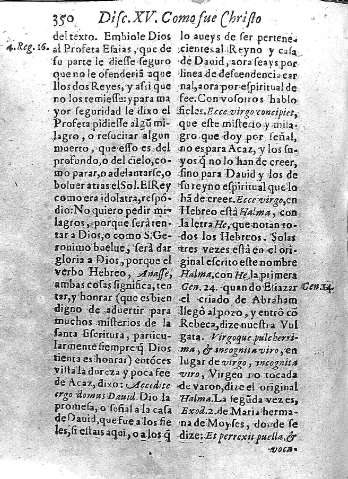 350 Disc. XV. Como fue Christo
4. Reg. 16.
del texto. Embiole Dios
al Profeta Esaias, que de
su parte le diesse seguro
que no le ofenderiā aque
llos dos Reyes, y assi que
no los temiesse: y para ma
yor seguridad le dixo el
Profeta pidiesse algũ mi-
lagro, o resucitar algun
muerto, que esso es del
profundo, o del cielo, co-
mo parar, o adelantarse, o
boluer atras el Sol. El Rey
como era idolatra, respō-
dio: No quiero pedir mi-
lagros, porque serà ten-
tar a Dios, o como S. Ge-
ronimo buelue, serà dar
gloria a Dios, porque el
verbo Hebreo, Anasse,
ambas cosas significa, ten
tar, y honrar (que es bien
digno de aduertir para
muchos misterios de la
santa Escritura, particu-
larmente siempre q̃ Dios
tienta es honrar) entōces
vista la dureza y poca fee
de Acaz, dixo: Accedite
ergo domus Dauid. Dio la
promesa, o señal a la casa
de Dauid, que fue a los fie
les, si estais aqui, o a los q̃
lo aueys de ser pertene-
cientes al Reyno y casa
de Dauid, aora seays por
linea de descendencia car
nal, aora por espiritual de
fee. Con vosotros hablo
fieles. Ecce virgo concipiet,
que este misterio y mila-
gro que doy por señal,
no es para Acaz, y los su-
yos q̃ no lo han de creer,
sino para Dauid y los de
su reyno espiritual que lo
hā de creer. Ecce virgo, en
Hebreo està Halma, con
la letra He, que notan to-
dos los Hebreos. Solas
tres vezes està en el ori-
ginal escrito este nombre
Halma, con He, la primera
Gen. 24. quando Eliazar
Gen. 24.
el criado de Abraham
llegò al pozo, y entrò cō
Rebeca, dize nuestra Vul
gata. Virgoque pulcherri-
ma, & incognita viro, en
lugar de virgo, incognita
viro, Virgen no tocada
de varon, dize el original
Halma. La segũda vezes,
Exod. 2. de Maria herma-
na de Moyses, donde se
dize: Et perrexit puella, &
voca-